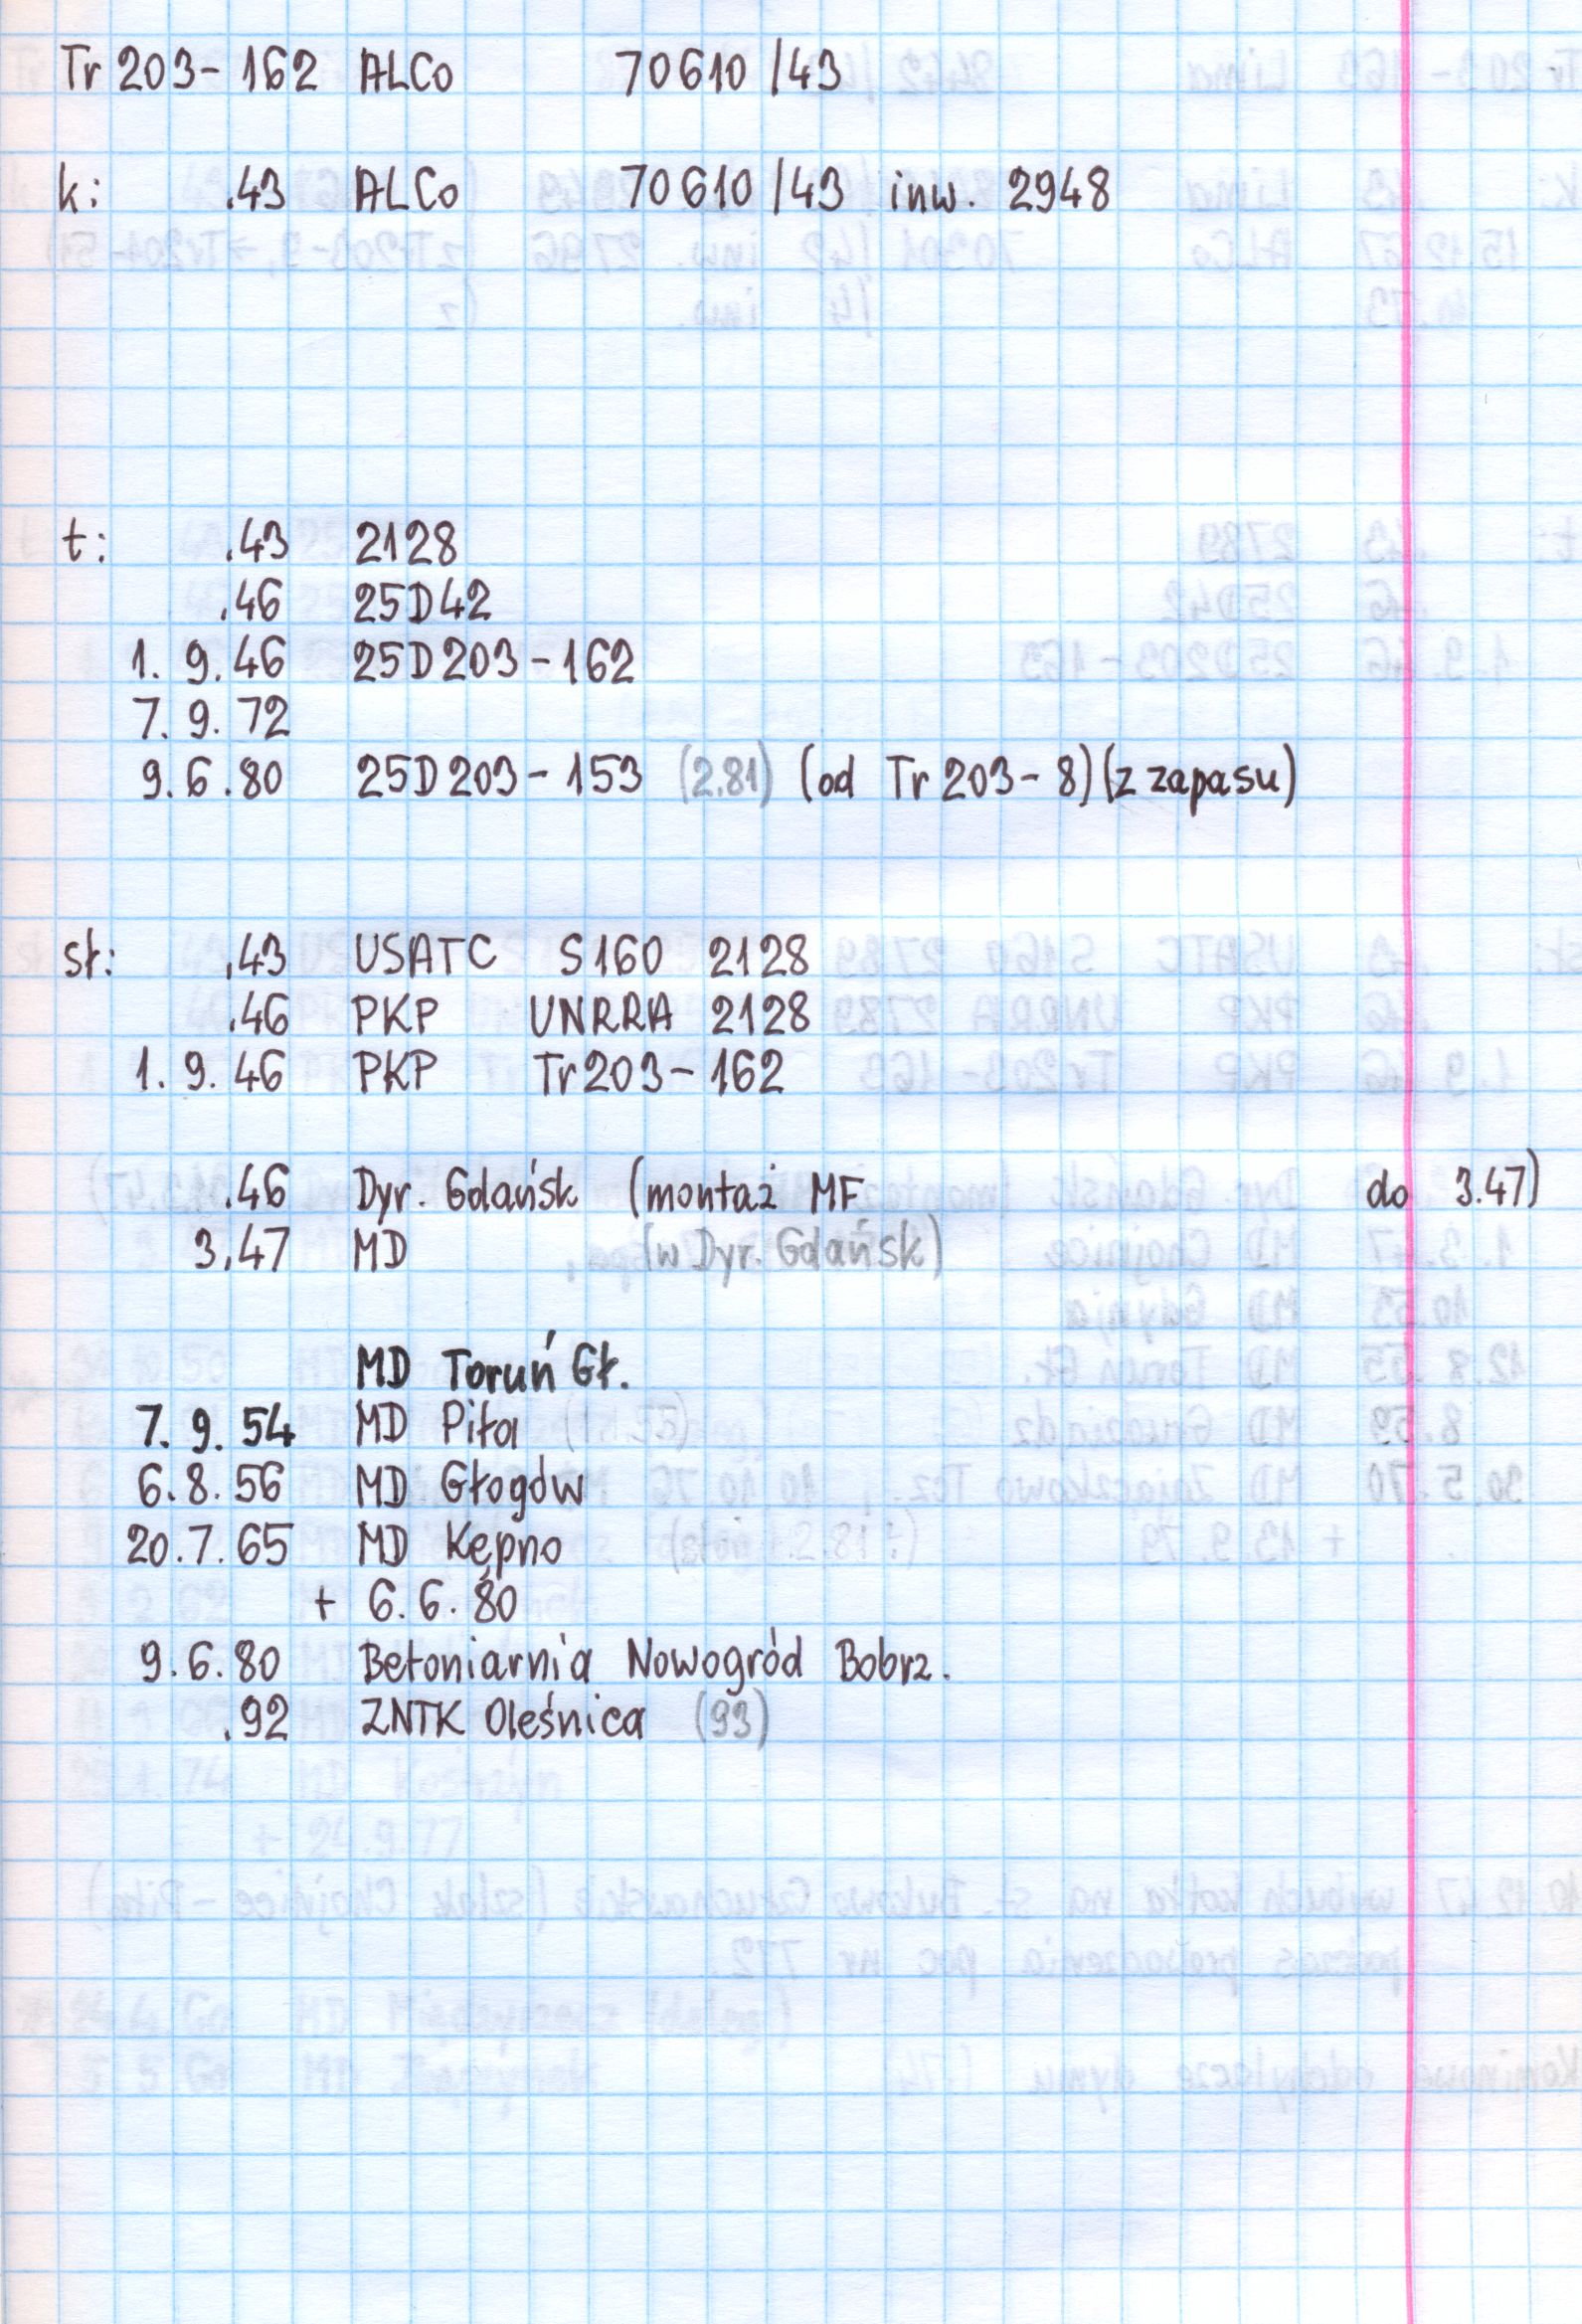 Tr 203-162 ALCo 70610/43
k: .43 ALCo 70610/43 inw. 2948
t: .43 2128
.46 25D42
1. 9.46 25D203-162
7. 9. 72
9.6.80 25D203-153 (2.81) (od Tr 203-8) (z zapasu)
st: .43 USATC S160 2128
.46 PKP UNRRA 2128
1. 9. 46 PKP Tr203-162
.46 Dyr. Gdańsk (montaż MF do 3.47)
3.47 MD (w Dyr. Gdańsk)
MD Toruń Gł.
7. 9. 54 MD Piła
6.8.56 MD Głogów
20.7.65 MD Kępno
+ 6.6.80
9.6.80 Betoniarnia Nowogród Bobrz.
.92 ZNTK Oleśnica (93)